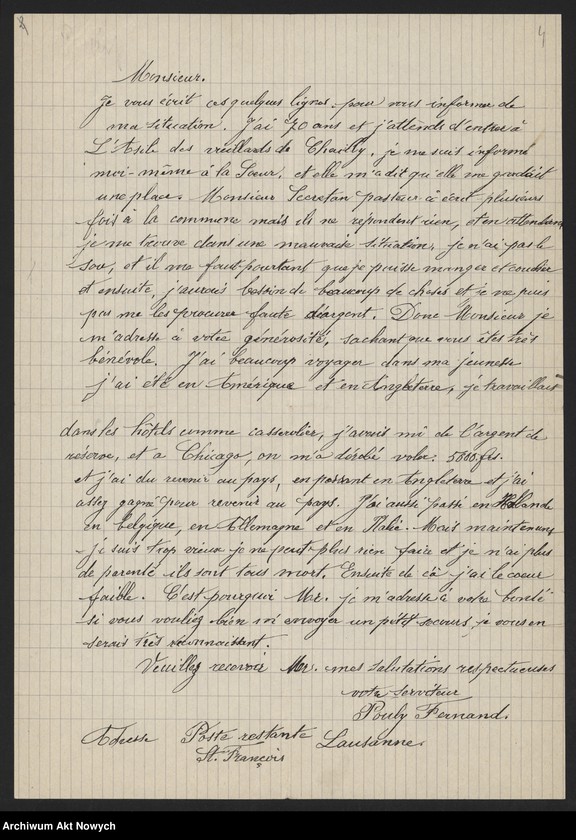 4
Monsieur.
Je vous écrit ces quelques lignes pour vous informer de
ma situation. J'ai 70 ans et j'attends d'entrer à
L'Asile des vieillards de Chailly, je me suis informé
moi-même à la Soeur, et elle m'a dit qu'elle me gardait
une place. Monsieur Secretan pasteur à écrit plusieurs
fois à la commune mais ils ne repondent rien, et en attendant
je me trouve dans une mauvaise situation, je n'ai pas le
sou, et il me faut pourtant que je puisse manger et coucher
et ensuite, j'aurais besoin de beaucoup de choses et je ne puis
pas me les procurer faute d'argent. Donc Monsieur je
m'adresse à votre générosité, sachant que vous êtes très
bénévole. J'ai beaucoup voyager dans ma jeunesse
j'ai été en Amérique et en Angleterre, je travaillais
dans les hôtels comme casserolier, j'avais mi de l'argent de
reserve, et a Chicago, on m'a dérobé voler: 5000 frs.
et j'ai du revenir au pays, en passant en Angleterre et j'ai
assez gagné pour revenir au pays. J'ai aussi passé en Hollande
en Belgique, en Allemagne et en Italie. Mais maintenant
je suis trop vieux je ne peut plus rien faire et je n'ai plus
de parenté ils sont tous mort. Ensuite de çà j'ai le coeur
faible. C'est pourquoi Mr. je m'adresse à votre bonté
si vous vouliez bien m'envoyer un petit secours, je vous en
serais très reconnaissant.
Veuillez recevoir Mr. mes salutations respectueuses
votre serviteur
Pouly Fernand.
Adresse Poste restante Lausanne.
St. François
Archiwum Akt Nowych